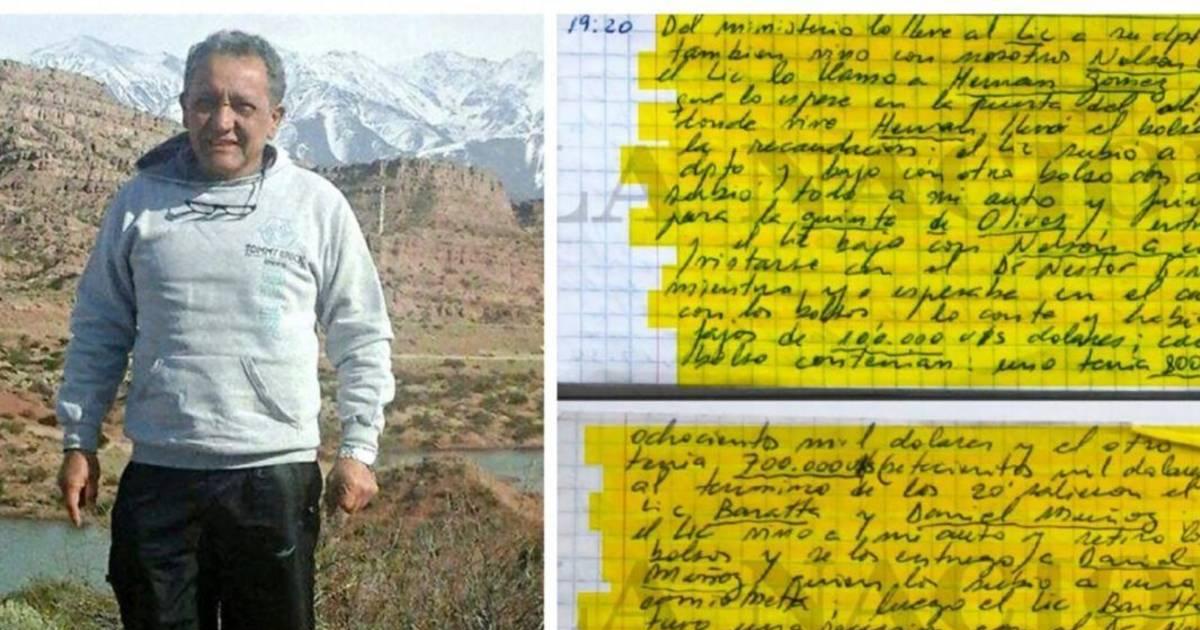 TOMMY
19:20 Del ministerio lo lleve al Lic a su dpto
tambien vino con nosotros Nelson
el Lic lo llamo a Hernan Gomez
que lo espere en la puerta del
donde vive Hernan llevó el bolso
la recaudacion. el Lic subio a
dpto y bajo con otro bolso con
subio todo a mi auto y
para la quinta de Olivos
el Lic bajo con Nelson a
con el Dr Nestor
mientras yo esperaba en el
con los bolsos los conte y habia
fajos de 100.000 U$S dolares; cada
bolso contenian: uno tenia 800
ochocientos mil dolares y el otro
tenia 700.000 U$S (setecientos mil dolares
al termino de los 20' salieron el
Lic Baratta y Daniel Muñoz
el Lic vino a mi auto y retiro los
bolsos y se los entrego a Daniel
Muñoz quien los subio a una
camioneta; luego el Lic Baratta
tuvo una reunion con el Dr
LA NACION